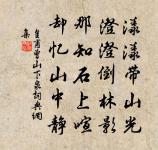 漾漾帶山光
澄澄倒林影
那知石上喧
却憶山中靜
皇甫曾山下泉詞典網
集